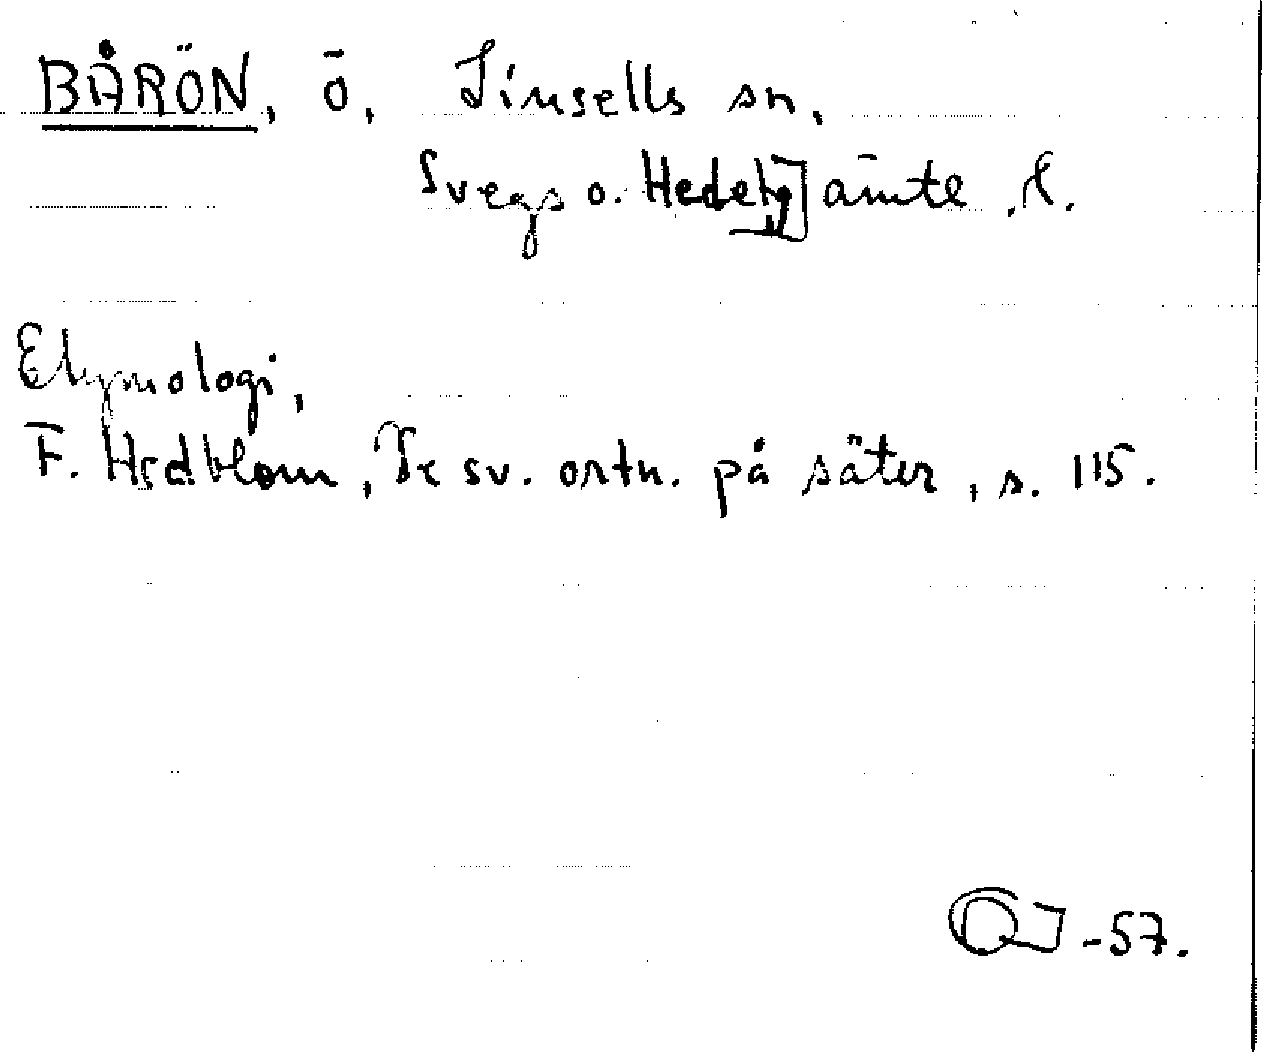 BÅRÖN, ö, Linsells sn,
Svegs o. Hede tg Jämtl. l.
Etymologi,
F. Hedblom, De sv. ortn. på säter, s. 115.
-57.